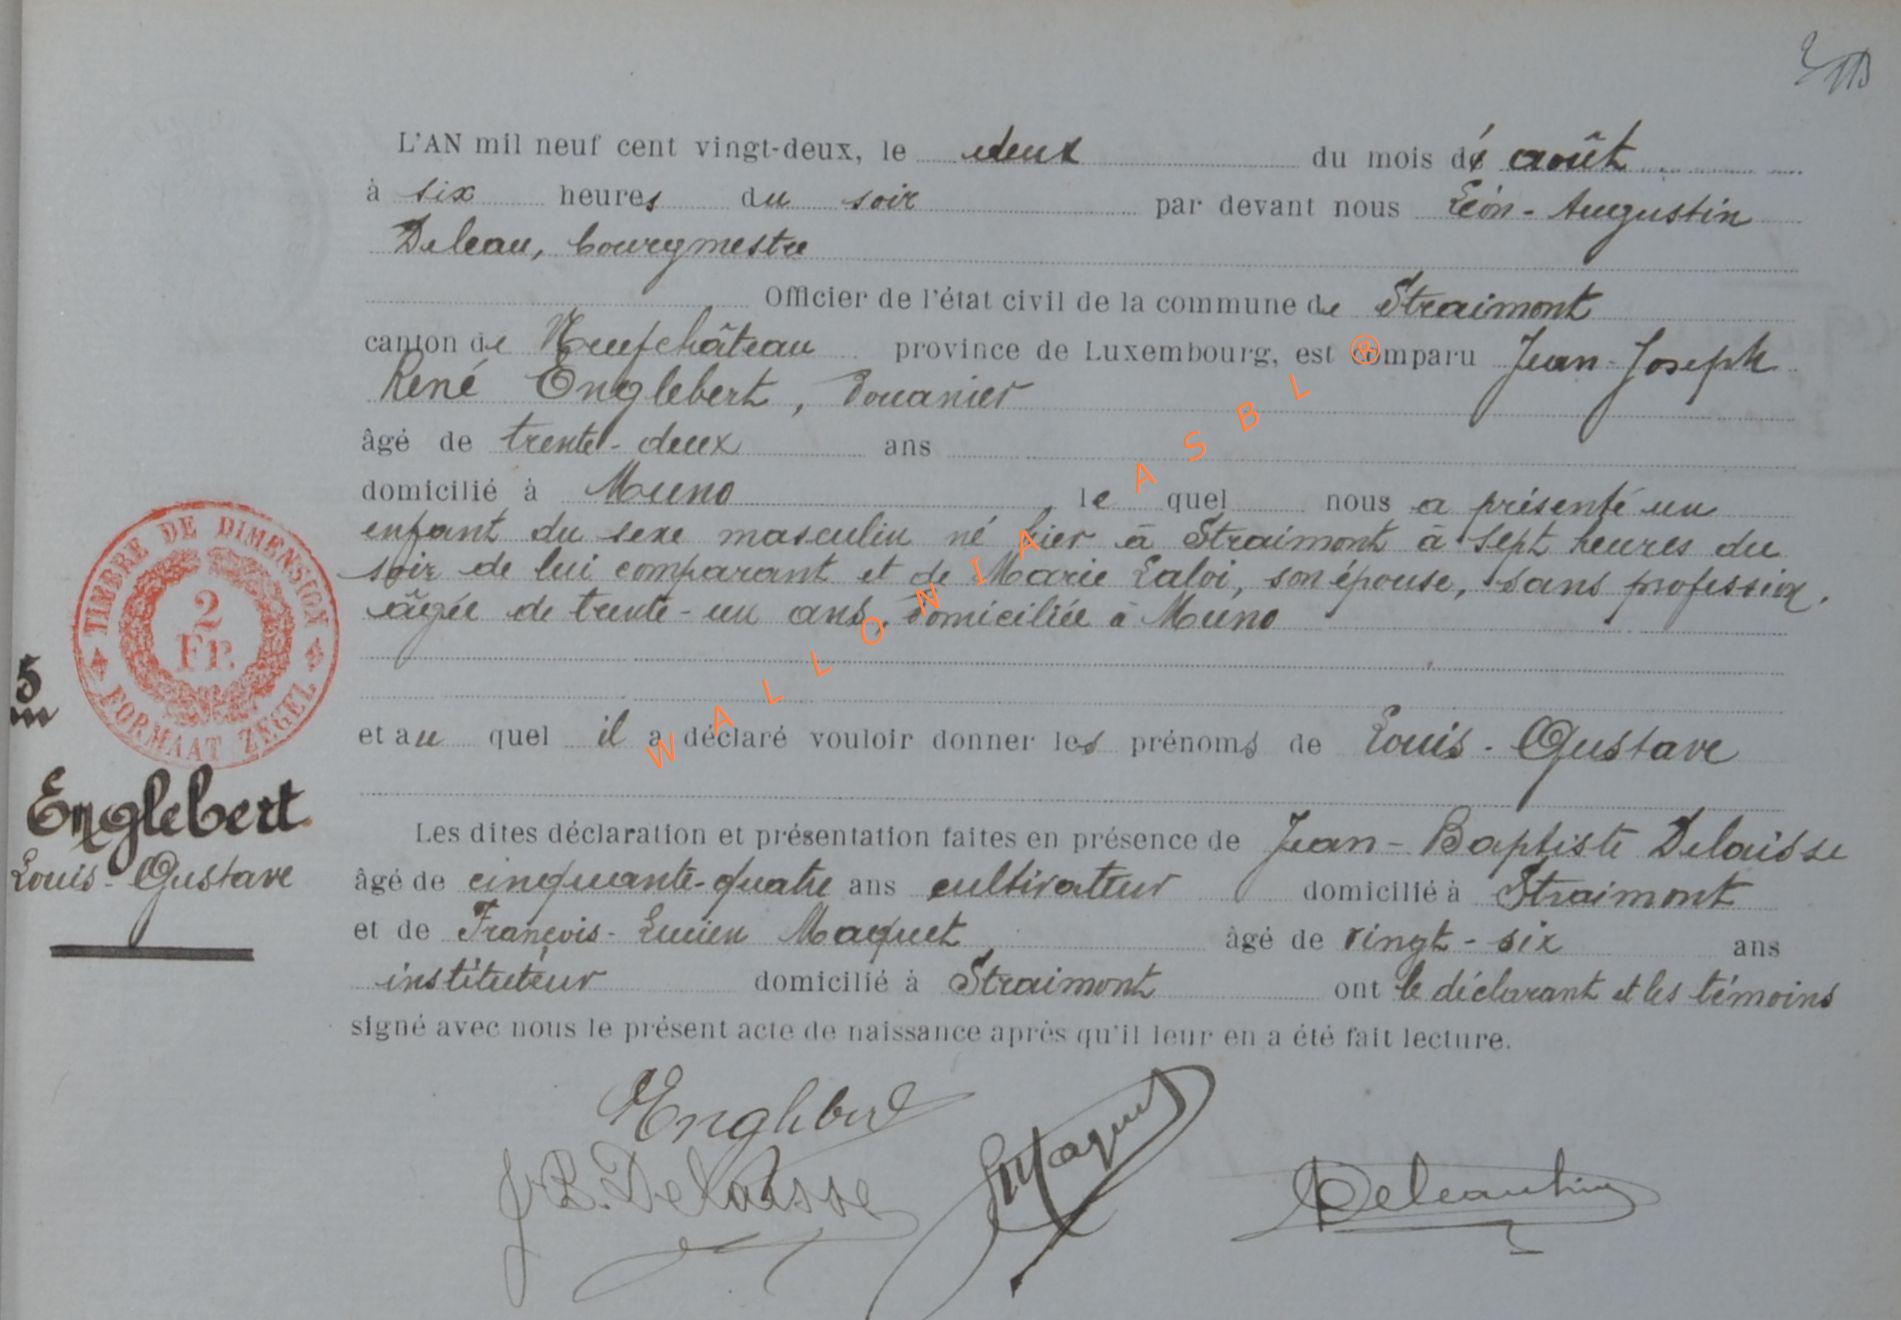 L'AN mil neuf cent vingt-deux, le deux du mois d' août
à six heures du soir par devant nous Léon-Augustin
Deleau, bourgmestre
Officier de l'état civil de la commune de Straimont
canton de Neufchâteau province de Luxembourg, est comparu Jean-Joseph
René Englebert, douanier
âgé de trente-deux ans
domicilié à Muno lequel nous a présenté un
enfant du sexe masculin né hier à Straimont à sept heures du
soir de lui comparant et de Marie Laloi, son épouse, sans profession,
âgée de trente-un ans, domiciliée à Muno
et au quel il a déclaré vouloir donner les prénoms de Louis-Gustave
Les dites déclaration et présentation faites en présence de Jean-Baptiste Delaisse
âgé de cinquante-quatre ans cultivateur domicilié à Straimont
et de François-Lucien Maquet âgé de vingt-six ans
instituteur domicilié à Straimont ont le déclarant et les témoins
signé avec nous le présent acte de naissance après qu'il leur en a été fait lecture.
TIMBRE DE DIMENSION
2
FR.
FORMAAT ZEGEL
5
Englebert
Louis-Gustave
Englebert
J.B. Delaisse
Maquet
WALLONIA ASBL ®